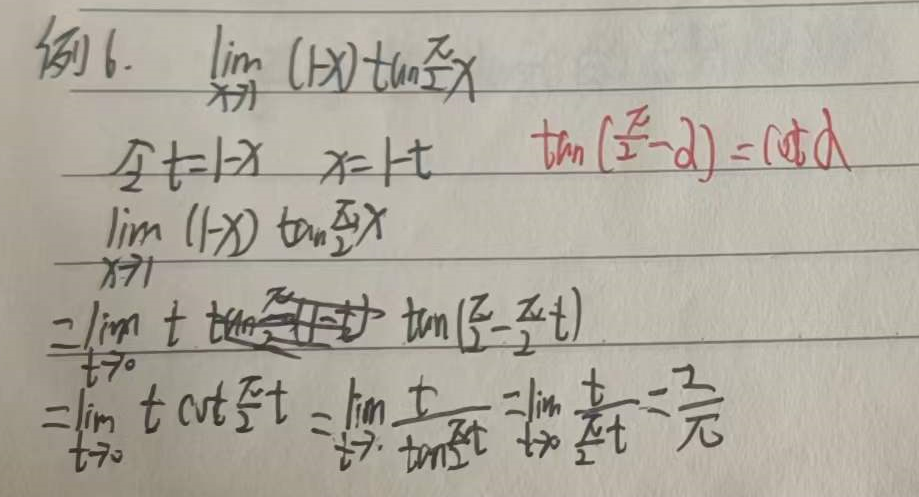 例6. lim x→1 (1-x) tan π/2 x
立 t=1-x x=1-t tan(π/2-α)=cot α
lim x→1 (1-x) tan π/2 x
=lim t→0 t tan(π/2-π/2 t)
=lim t→0 t cot π/2 t =lim t→0 t/tan π/2 t =lim t→0 t/(π/2 t) =2/π